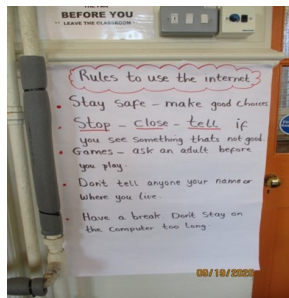 BEFORE YOU
LEAVE THE CLASSROOM
Rules to use the internet
Stay safe – make good choices
Stop – close – tell if
you see something thats not good.
Games – ask an adult before
you play.
Don't tell anyone your name or
where you live.
Have a break. Don't stay on
the computer too long
09/19/2020